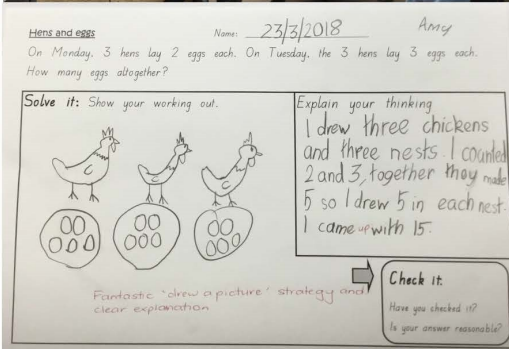 Amy
Hens and eggs Name: 23/3/2018
On Monday, 3 hens lay 2 eggs each. On Tuesday, the 3 hens lay 3 eggs each.
How many eggs altogether?
Solve it: Show your working out.
Explain your thinking
I drew three chickens
and three nests. I counted
2 and 3, together they made
5 so I drew 5 in each nest.
I came up with 15.
Fantastic 'drew a picture' strategy and
clear explanation
Check it:
Have you checked it?
Is your answer reasonable?